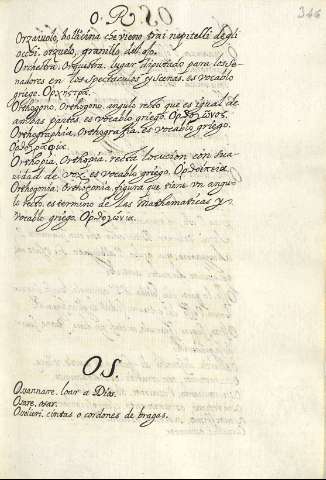 O. R.
346
Orzaruolo, bollicina che viene trai nepitelli degli
occhi. orzuelo, granillo del ojo.
Orchestra. Orquestra. lugar diputado para los Se-
nadores en los spectaculos y scenas. es vocablo
griego. Ορχηςτρα.
Orthogono, Orthogono, angulo recto que es igual de
ambas partes, es vocablo griego. Ορθογωνος.
Orthographia, Orthografia, es vocablo griego.
Ορθογραφια.
Orthopia, Orthopia, recta locucion con sua-
vidad de voz. es vocablo griego. Ορθοεπεια
Orthogonia, Orthogonia figura que tiene un angu-
lo recto, es termino de las Mathematicas y
vocablo griego. Ορθογωνια.
OS.
Osannare, loar a Dios.
Osare, osar.
cintas o cordones de bragas.